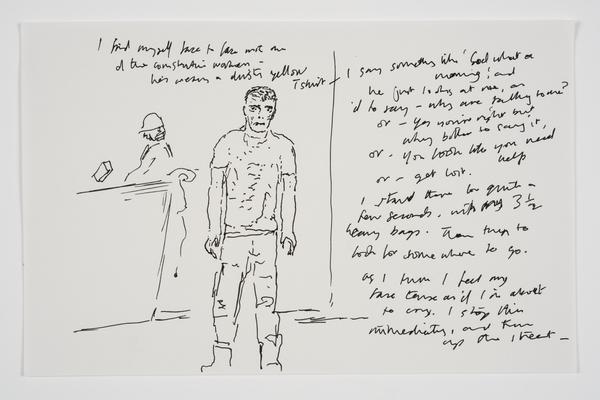 I find myself face to face with one
of the construction workmen -
he's wearing a dusty yellow
T shirt -
I say something like 'God what a
morning' and
he just looks at me, as
'd to say - why are talking to me?
or - yes you're right but
why bother to say it,
or - you look like you need
help
or - get lost.
I stand there for quite a
few seconds, with my 3 1/2
heavy bags. Then turn to
look for some where to go.
as I turn I feel my
face tense as if I'm about
to cry. I stop this
immediately, and turn
up the street -